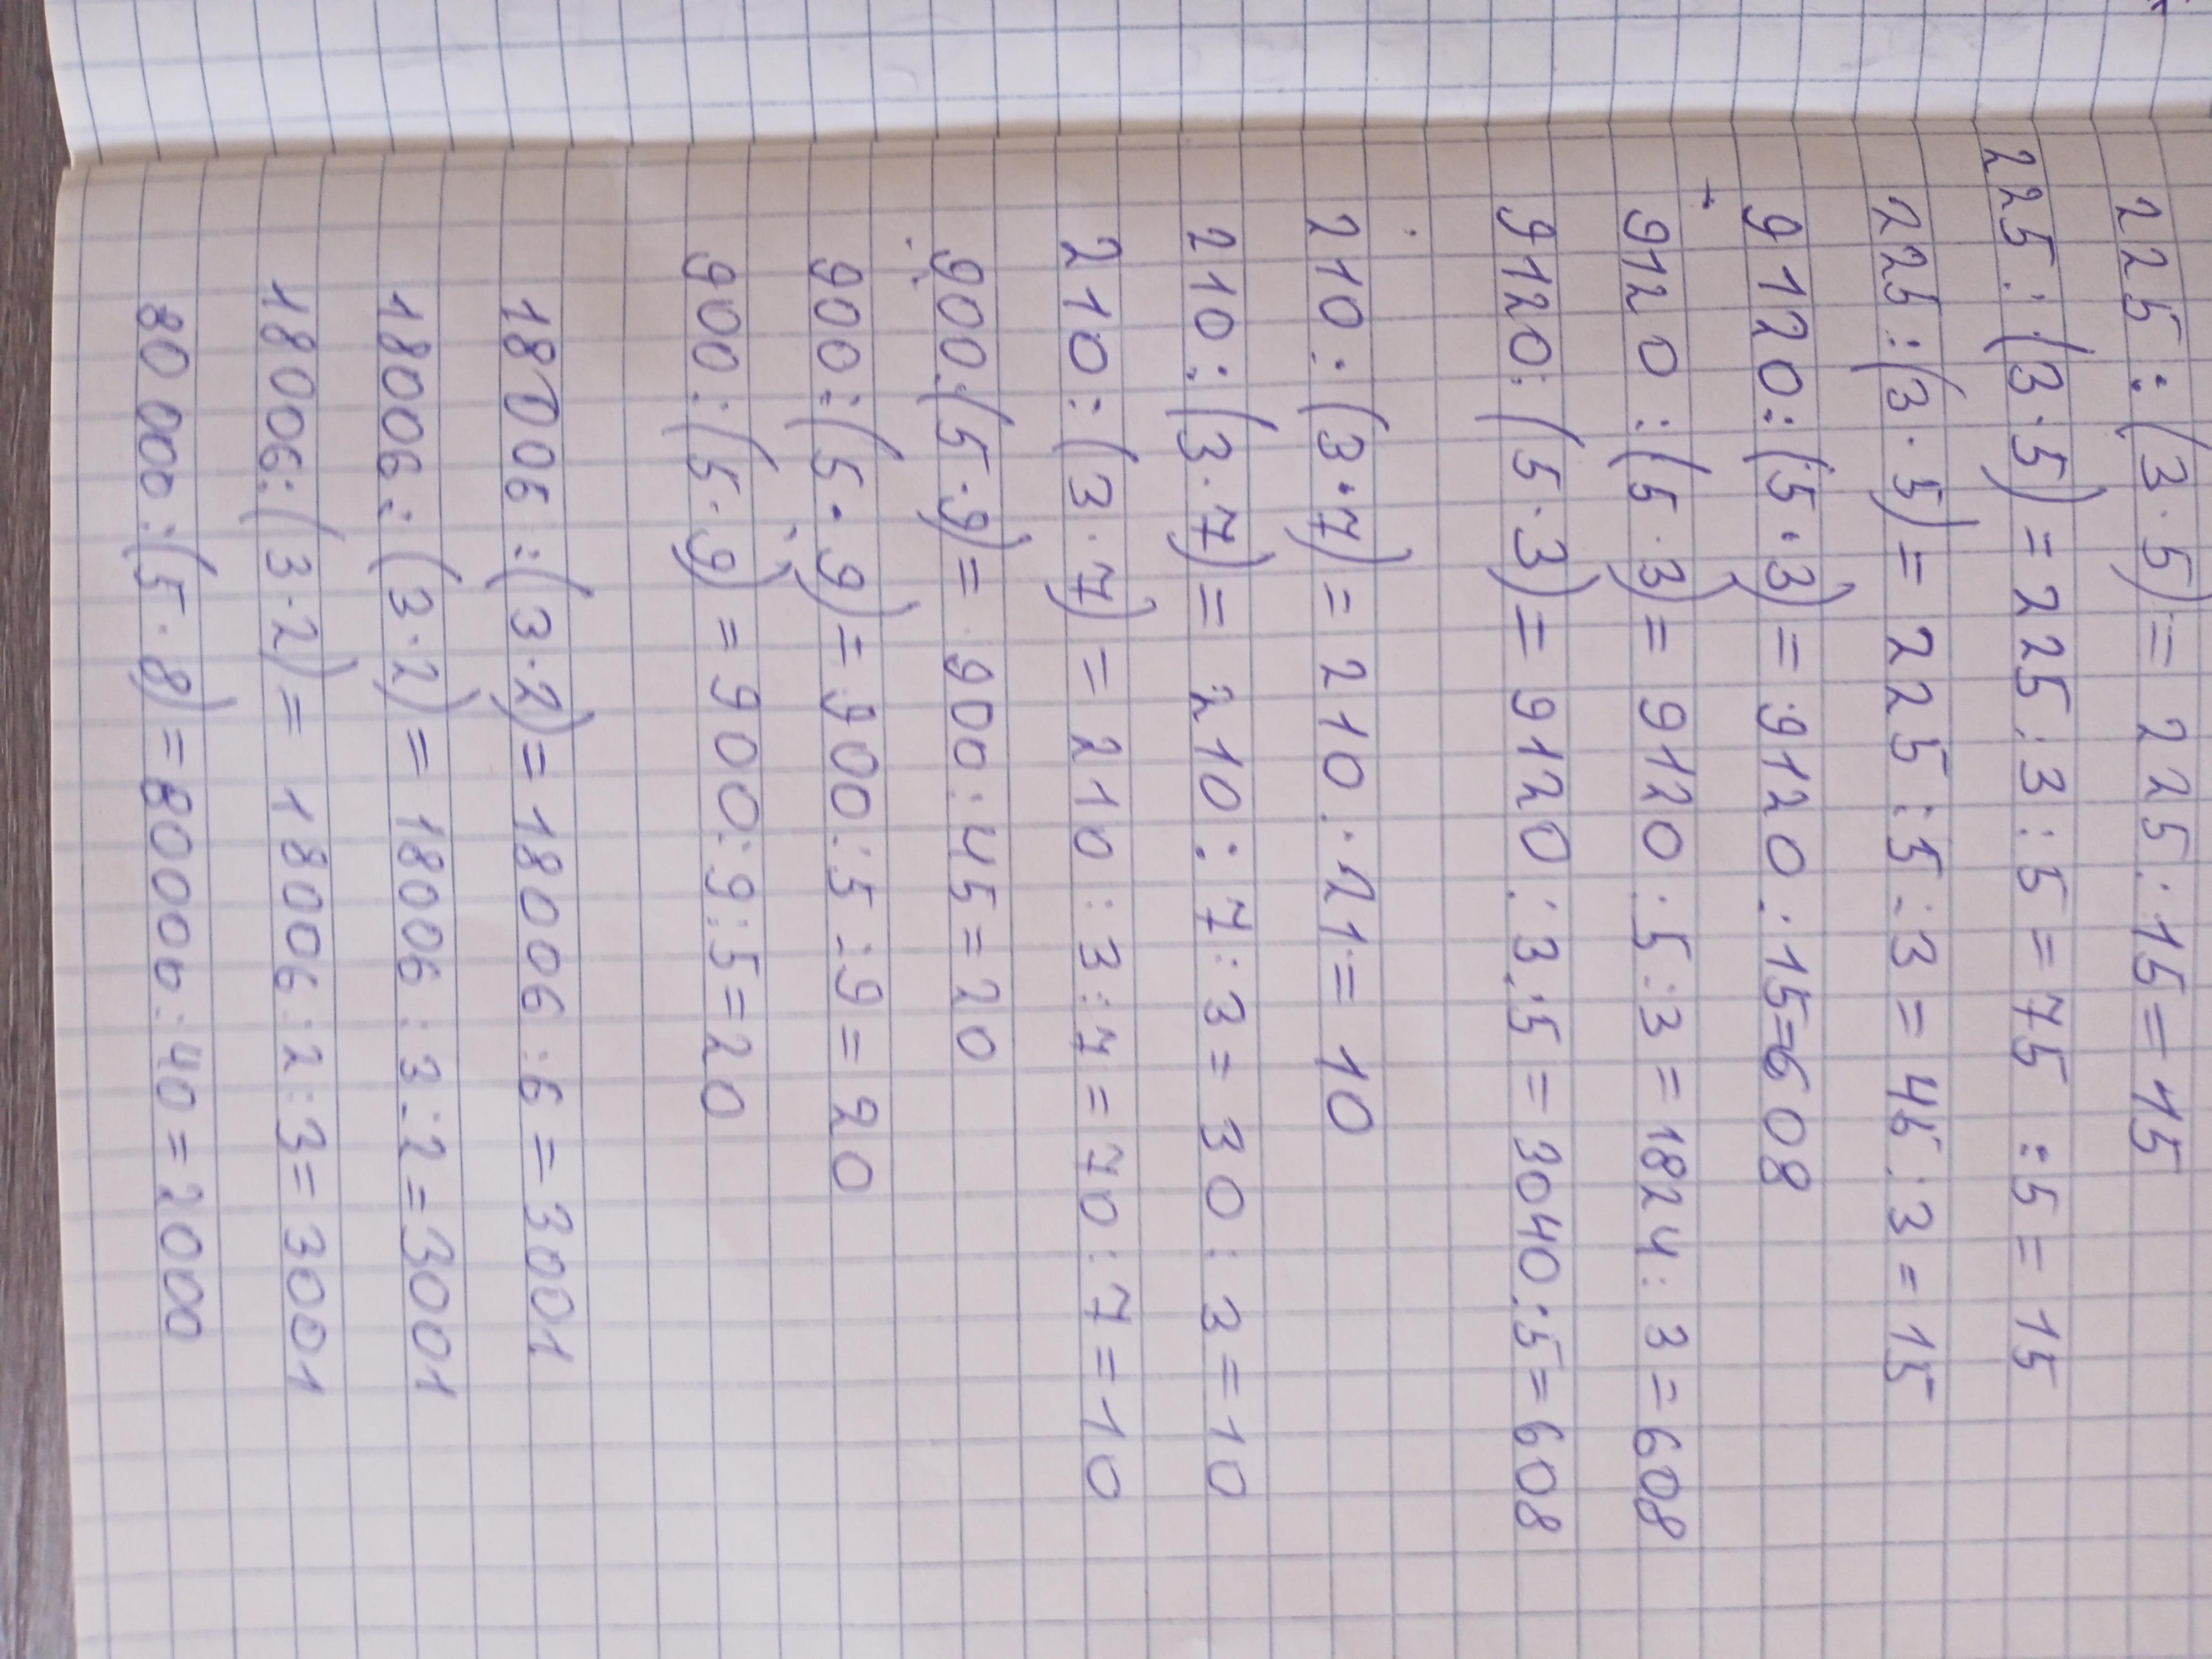 225 : (3 · 5) = 225 : 15 = 15
225 : (3 · 5) = 225 : 3 : 5 = 75 : 5 = 15
225 : (3 · 5) = 225 : 5 : 3 = 45 : 3 = 15
9120 : (5 · 3) = 9120 : 15 = 608
9120 : (5 · 3) = 9120 : 5 : 3 = 1824 : 3 = 608
9120 : (5 · 3) = 9120 : 3 : 5 = 3040 : 5 = 608
210 : (3 · 7) = 210 : 21 = 10
210 : (3 · 7) = 210 : 7 : 3 = 30 : 3 = 10
210 : (3 · 7) = 210 : 3 : 7 = 70 : 7 = 10
900 : (5 · 9) = 900 : 45 = 20
900 : (5 · 9) = 900 : 5 : 9 = 20
900 : (5 · 9) = 900 : 9 : 5 = 20
18006 : (3 · 2) = 18006 : 6 = 3001
18006 : (3 · 2) = 18006 : 3 : 2 = 3001
18006 : (3 · 2) = 18006 : 2 : 3 = 3001
80 000 : (5 · 8) = 80000 : 40 = 2000